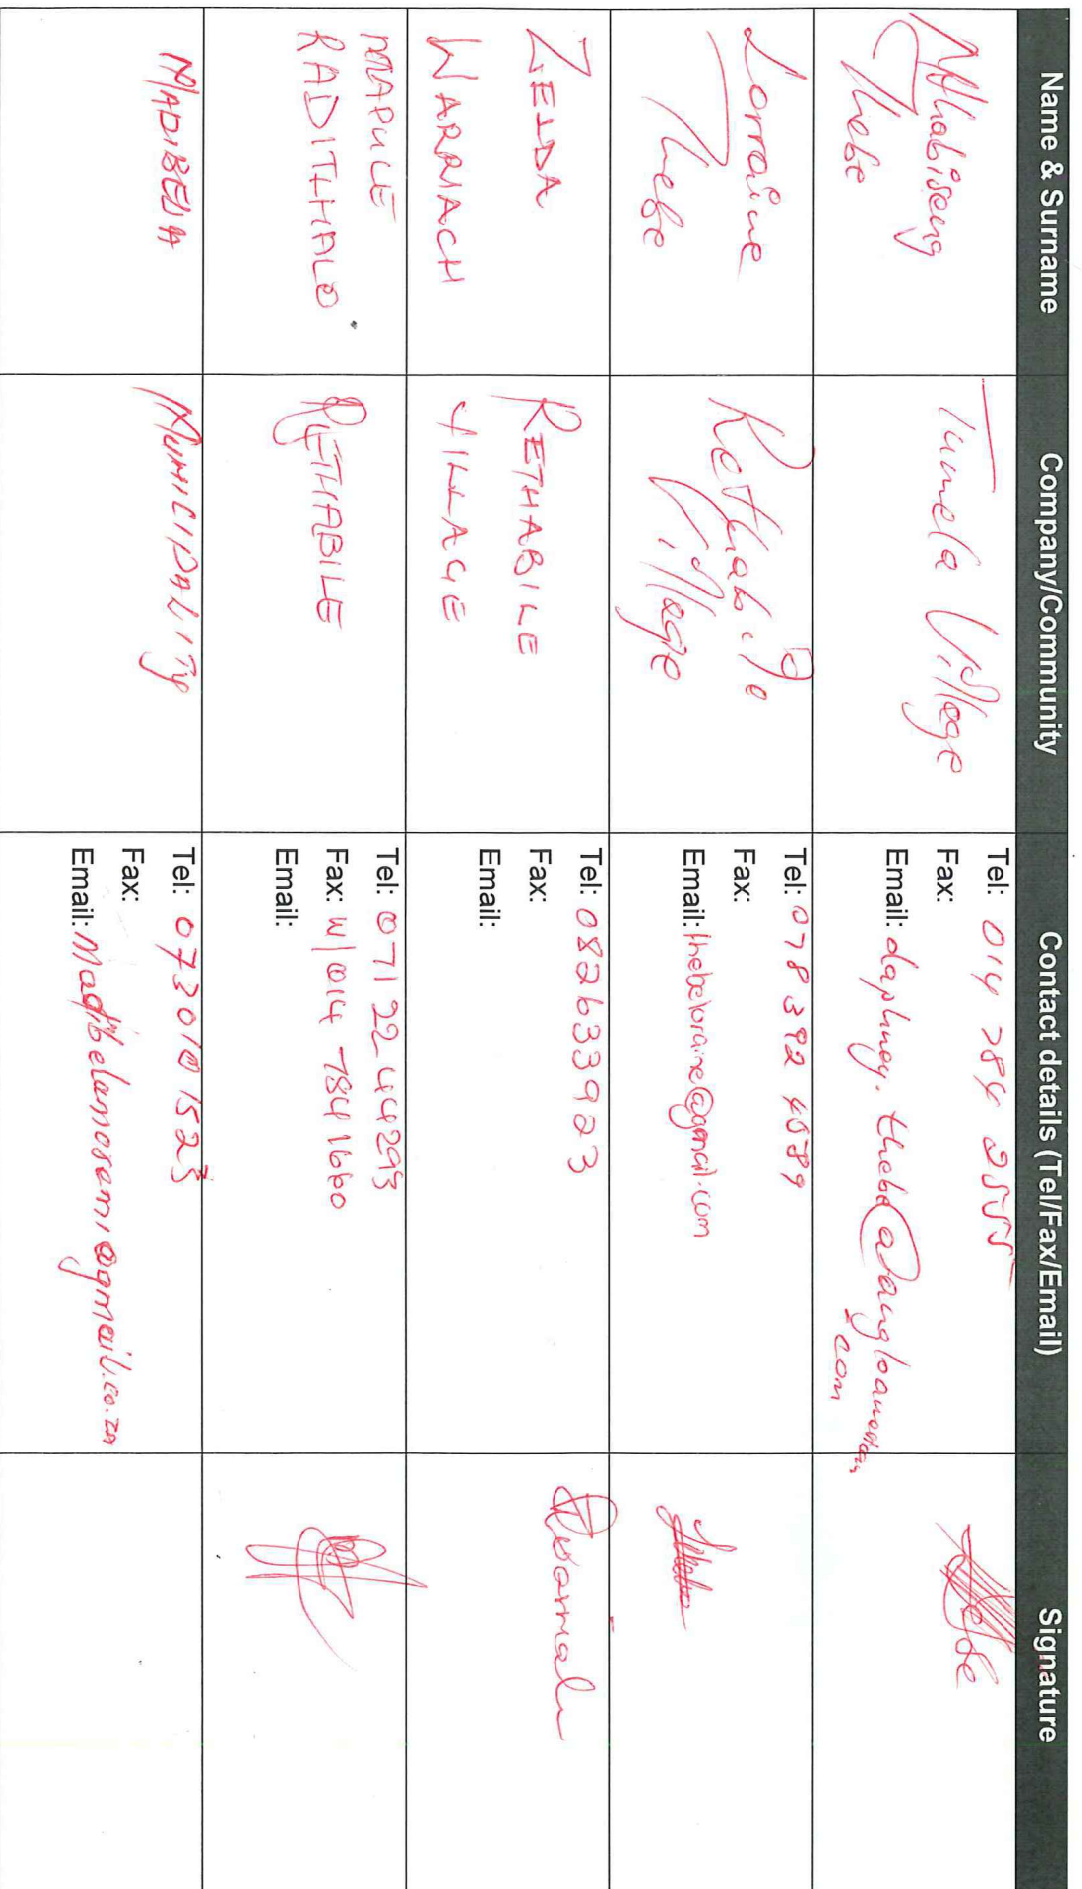 Name & Surname
Company/Community
Contact details (Tel/Fax/Email)
Signature
Thebe
Tumela Village
Tel: 014 784 2555
Fax:
Email: daphney.thebe@angloamerican
.com
Lorraine
Thebe
Rethabile
Village
Tel: 078 392 4589
Fax:
Email: thebeloraine@gmail.com
ZELDA
WARRIACH
RETHABILE
VILLAGE
Tel: 0826339923
Fax:
Email:
MAPULE
RADITLHALO
RETHABILE
Tel: 071 22 44293
Fax: W/014 784 1660
Email:
MADIBELA
MUNICIPALITY
Tel: 0730101523
Fax:
Email: